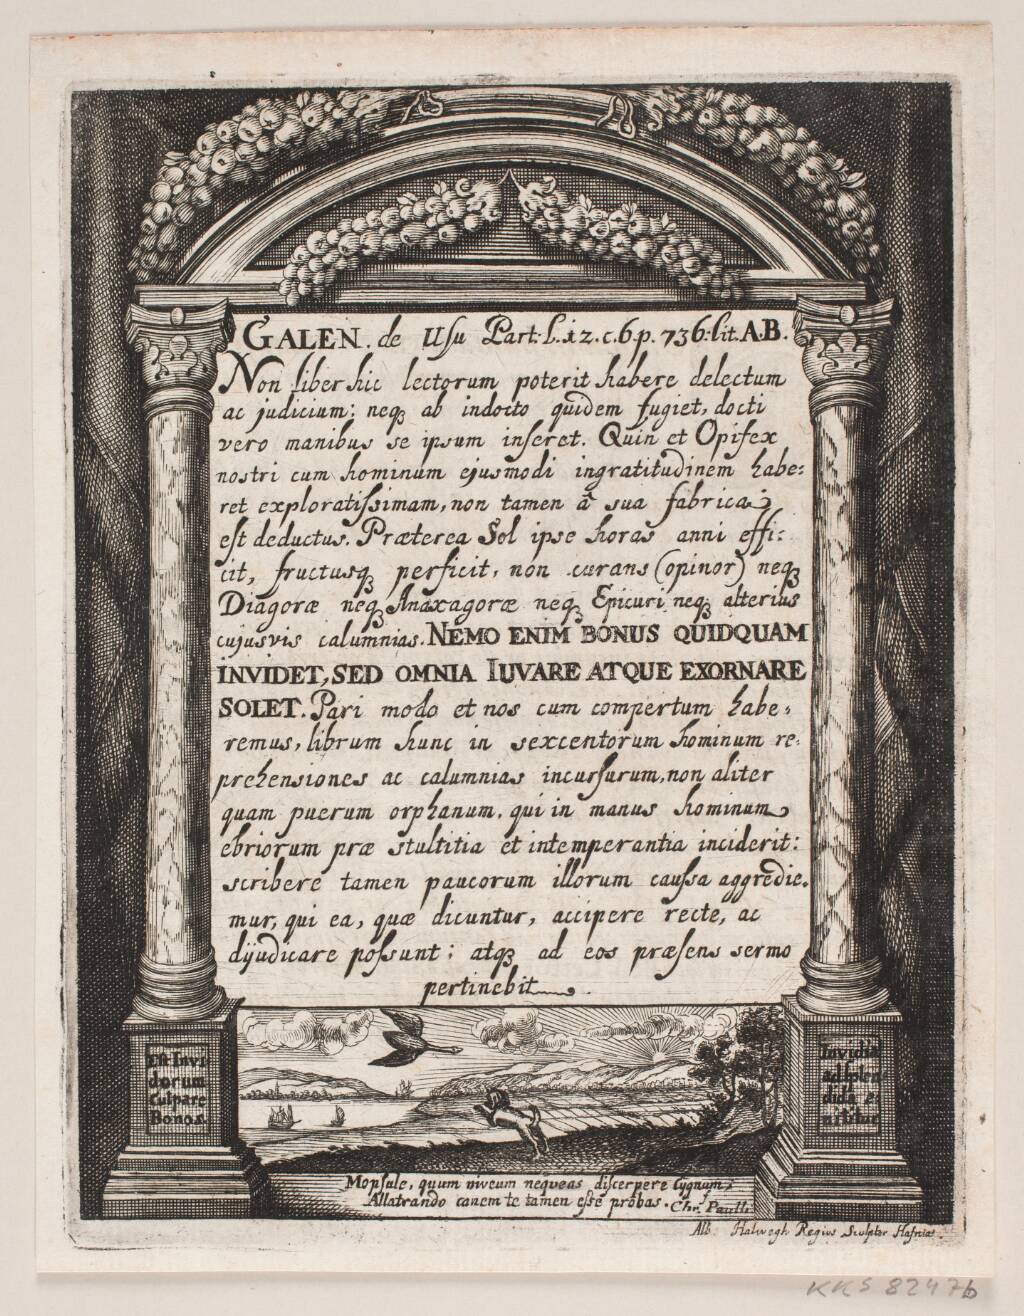 GALEN. de Usu Part. l. 12. c. 6 p. 736. lit. A.B.
Non liber hic lectorum poterit habere delectum
ac judicium; neqꝫ ab indocto quidem fugiet, docti
vero manibus se ipsum inseret. Quin et Opifex
nostri cum hominum ejusmodi ingratitudinem habe:
ret exploratissimam, non tamen â sua fabrica
est deductus. Præterea Sol ipse horas anni effi:
cit, fructusqꝫ perficit, non curans (opinor) neqꝫ
Diagoræ neqꝫ Anaxagoræ neqꝫ Epicuri neqꝫ alterius
cujusvis calumnias. NEMO ENIM BONUS QUIDQUAM
INVIDET, SED OMNIA IUVARE ATQUE EXORNARE
SOLET. Pari modo et nos cum compertum habe:
remus, librum hunc in sexcentorum hominum re:
prehensiones ac calumnias incursurum, non aliter
quam puerum orphanum, qui in manus hominum
ebriorum præ stultitia et intemperantia inciderit:
scribere tamen paucorum illorum caussa aggredie.
mur, qui ea, quæ dicuntur, accipere recte, ac
dijudicare possunt; atqꝫ ad eos præsens sermo
pertinebit.
Est Invi
dorum
Culpare
Bonos.
Invidia
ad splen
dida et
nititur
Mopsule, quum niveum nequeas discerpere Cygnum,
Allatrando canem te tamen esse probas. Chr. Paulli.
Alb. Halwegh Regius Sculptor Hafniæ.
KKS 8247b